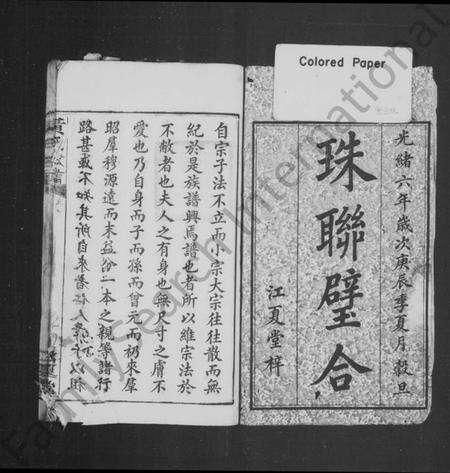 Colored Paper
光緒六年歲次庚辰季夏月穀旦
珠聯璧合
江夏堂梓
自宗子法不立而小宗大宗往往散而無
紀於是族譜興焉譜也者所以維宗法於
不敝者也夫人之有身也無尺寸之膚不
愛也乃自身而子而孫而曾元而礽來羣
昭羣穆源遠而末益分一本之親等諸行
路甚或不
FamilySearch International